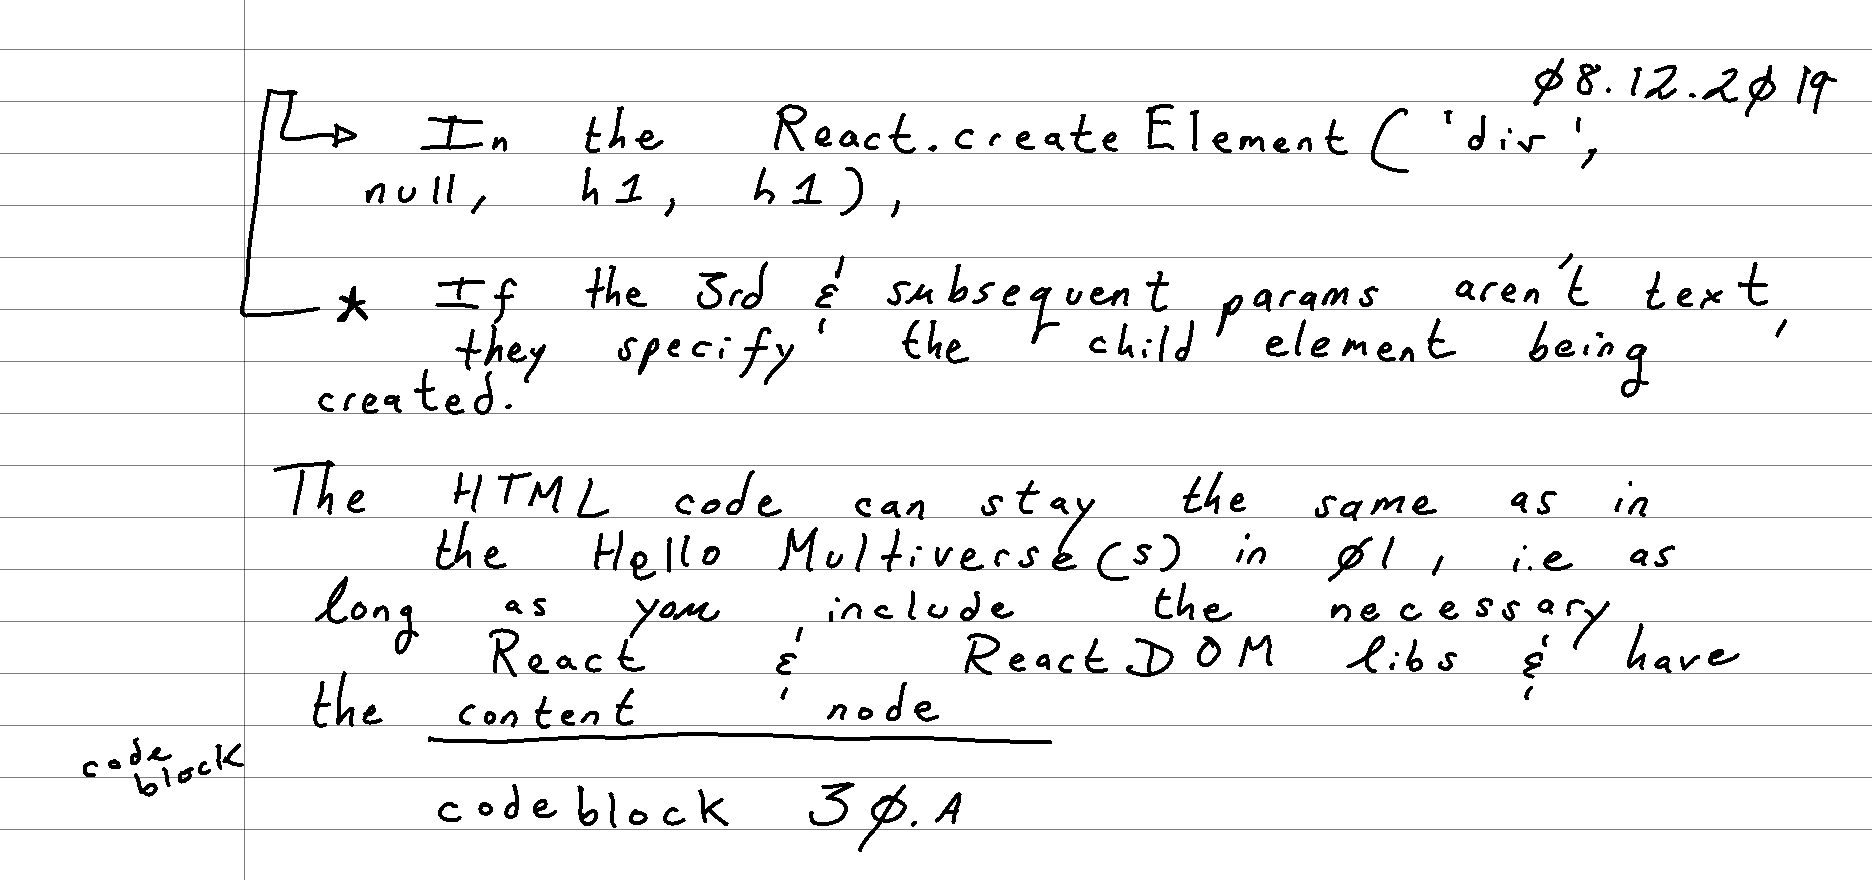 ø8.12.2ø19
In the React.createElement('div',
null, h1, h1),
* If the 3rd & subsequent params aren't text,
they specify the child element being
created.
The HTML code can stay the same as in
the Hello Multiverse(s) in ø1, i.e as
long as you include the necessary
React & ReactDOM libs & have
the content node
code
block
codeblock 3ø.A